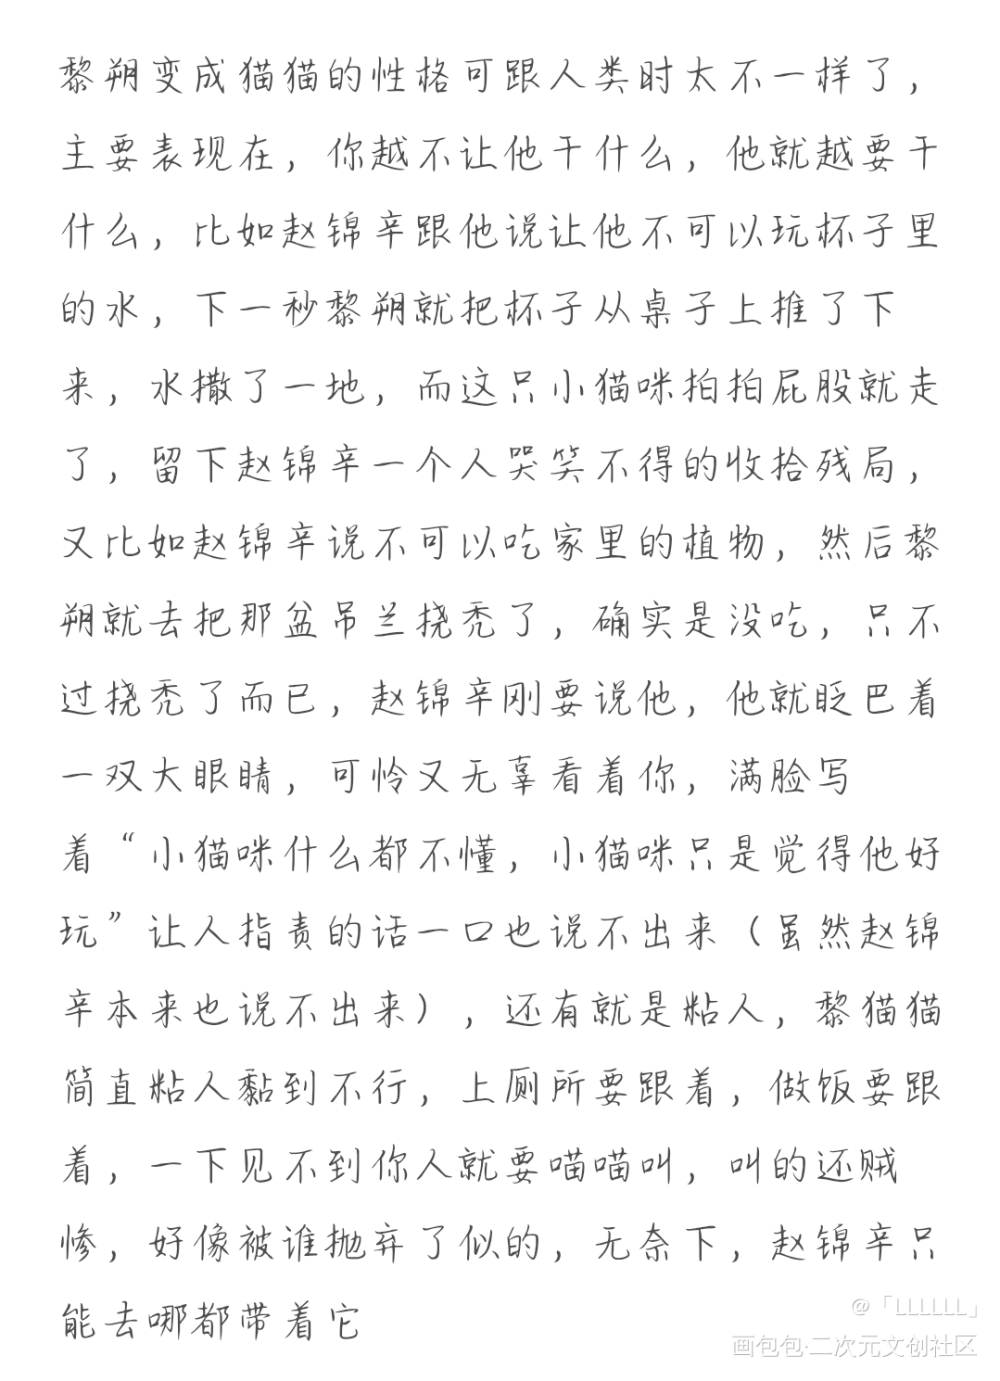 黎朔变成猫猫的性格可跟人类时太不一样了，
主要表现在，你越不让他干什么，他就越要干
什么，比如赵锦辛跟他说让他不可以玩杯子里
的水，下一秒黎朔就把杯子从桌子上推了下
来，水撒了一地，而这只小猫咪拍拍屁股就走
了，留下赵锦辛一个人哭笑不得的收拾残局，
又比如赵锦辛说不可以吃家里的植物，然后黎
朔就去把那盆吊兰挠秃了，确实是没吃，只不
过挠秃了而已，赵锦辛刚要说他，他就眨巴着
一双大眼睛，可怜又无辜看着你，满脸写
着“小猫咪什么都不懂，小猫咪只是觉得他好
玩”让人指责的话一口也说不出来（虽然赵锦
辛本来也说不出来），还有就是粘人，黎猫猫
简直粘人黏到不行，上厕所要跟着，做饭要跟
着，一下见不到你人就要喵喵叫，叫的还贼
惨，好像被谁抛弃了似的，无奈下，赵锦辛只
能去哪都带着它
@「LLLLLL」
画包包·二次元文创社区